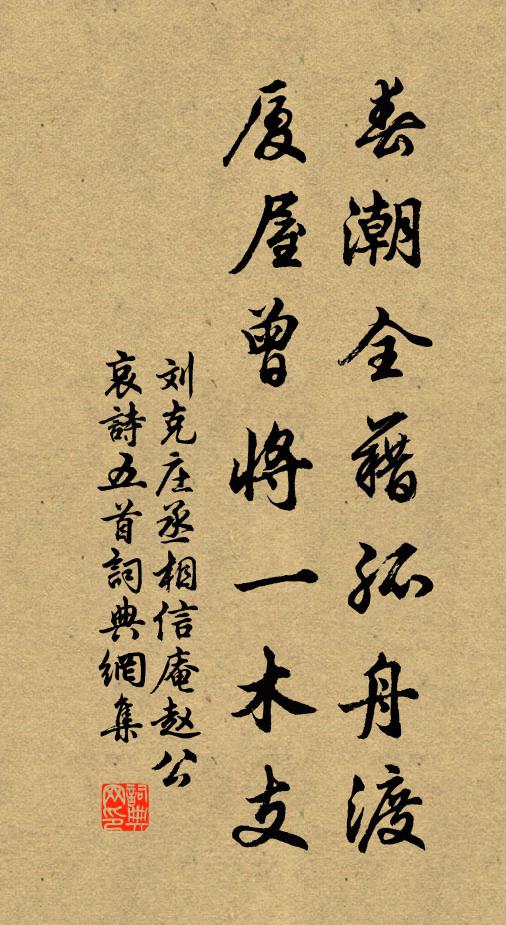 春潮全藉孤舟渡
厦屋曾將一木支
刘克庄丞相信庵赵公
哀詩五首詞典網集
詞典網印